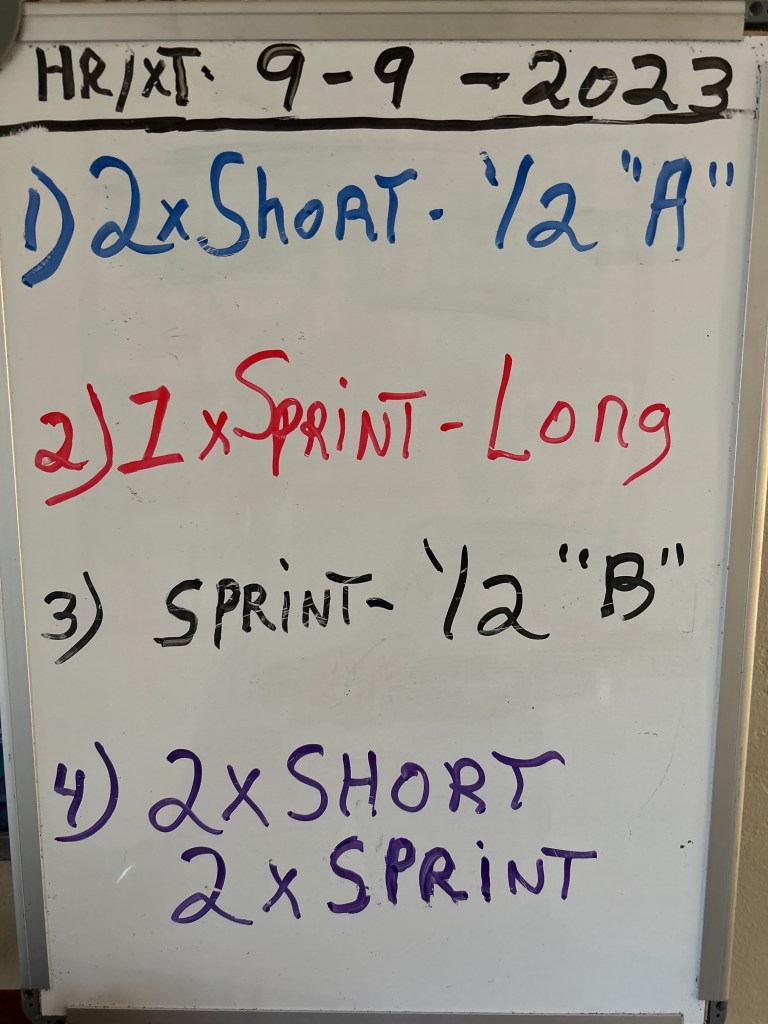 HR/XT. 9-9-2023
1) 2xShORT. 1/2 "A"
2) 1xSPRiNT-Long
3) SPRiNT- 1/2 "B"
4) 2xSHORT
2xSPRiNT